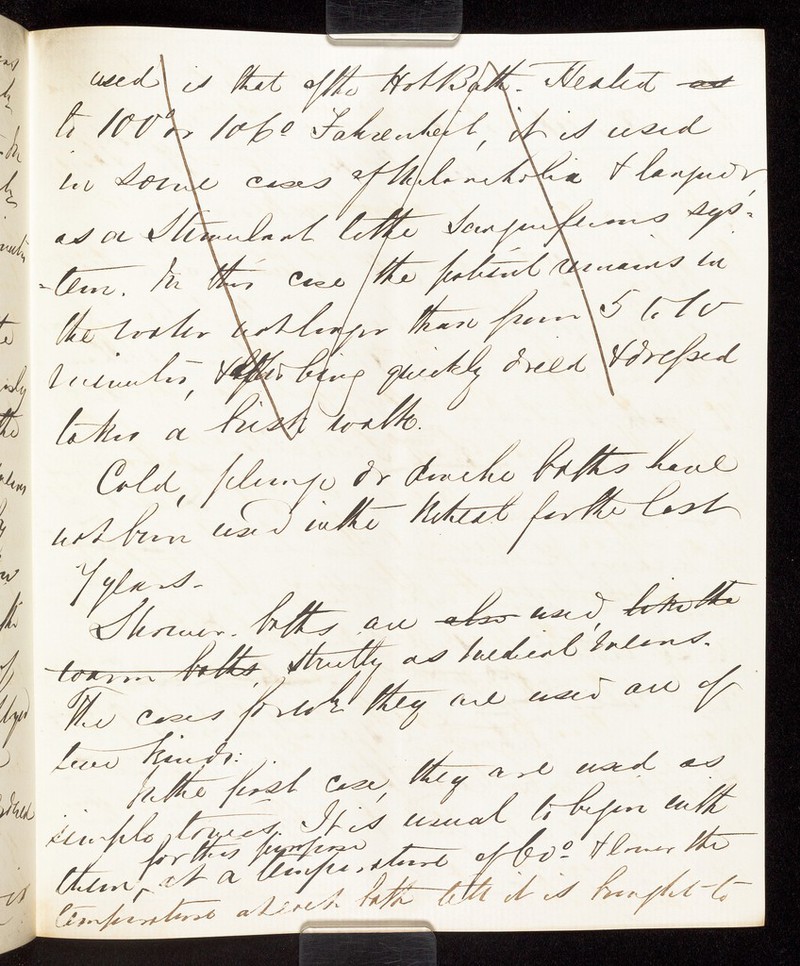 used is that of the Hot Bath. Heated as
to 100° or 106° Fahrenheit, it is used
in some cases of Melancholia & languor,
as a Stimulant to the Sanguiferous sys-
-tem. In this case the patient remains in
the water not longer than from 5 to 10
minutes, & after being quickly dried & dressed
takes a brisk walk.
Cold, plunge or douche baths have
not been used in the Retreat for the last
7 years.
Shower-baths are also used, like the
warm baths, strictly as medical means.
The cases for wh. they are used are of
two kinds:
In the first case, they are used as
simple tonics. It is usual to begin with
for this purpose
them, at a temperature of 60° & lower the
temperature at each bath till it is brought to